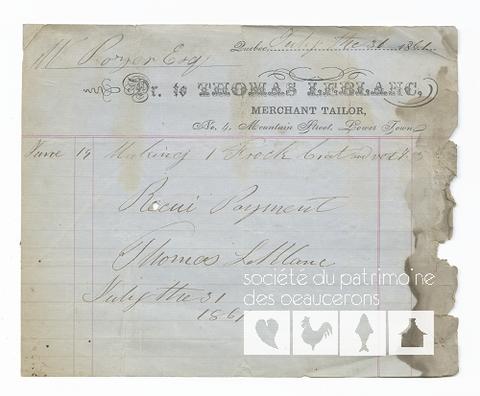 M Royer Esq
Quebec, July the 31 1861
Dr. to THOMAS LEBLANC,
MERCHANT TAILOR,
No. 4, Mountain Street, Lower Town
June 19 Making 1 Frock Coat and vest
Recui Payment
Thomas LeBlanc
July the 31
1861
société du patrimoine
des beaucerons